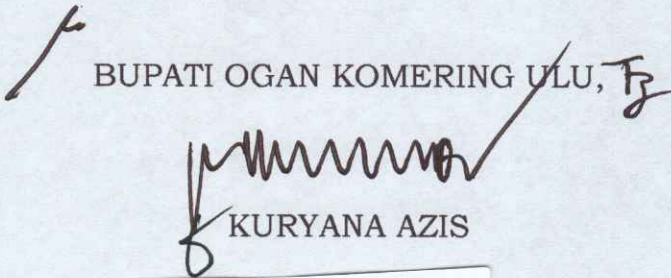 BUPATI OGAN KOMERING ULU,
KURYANA AZIS